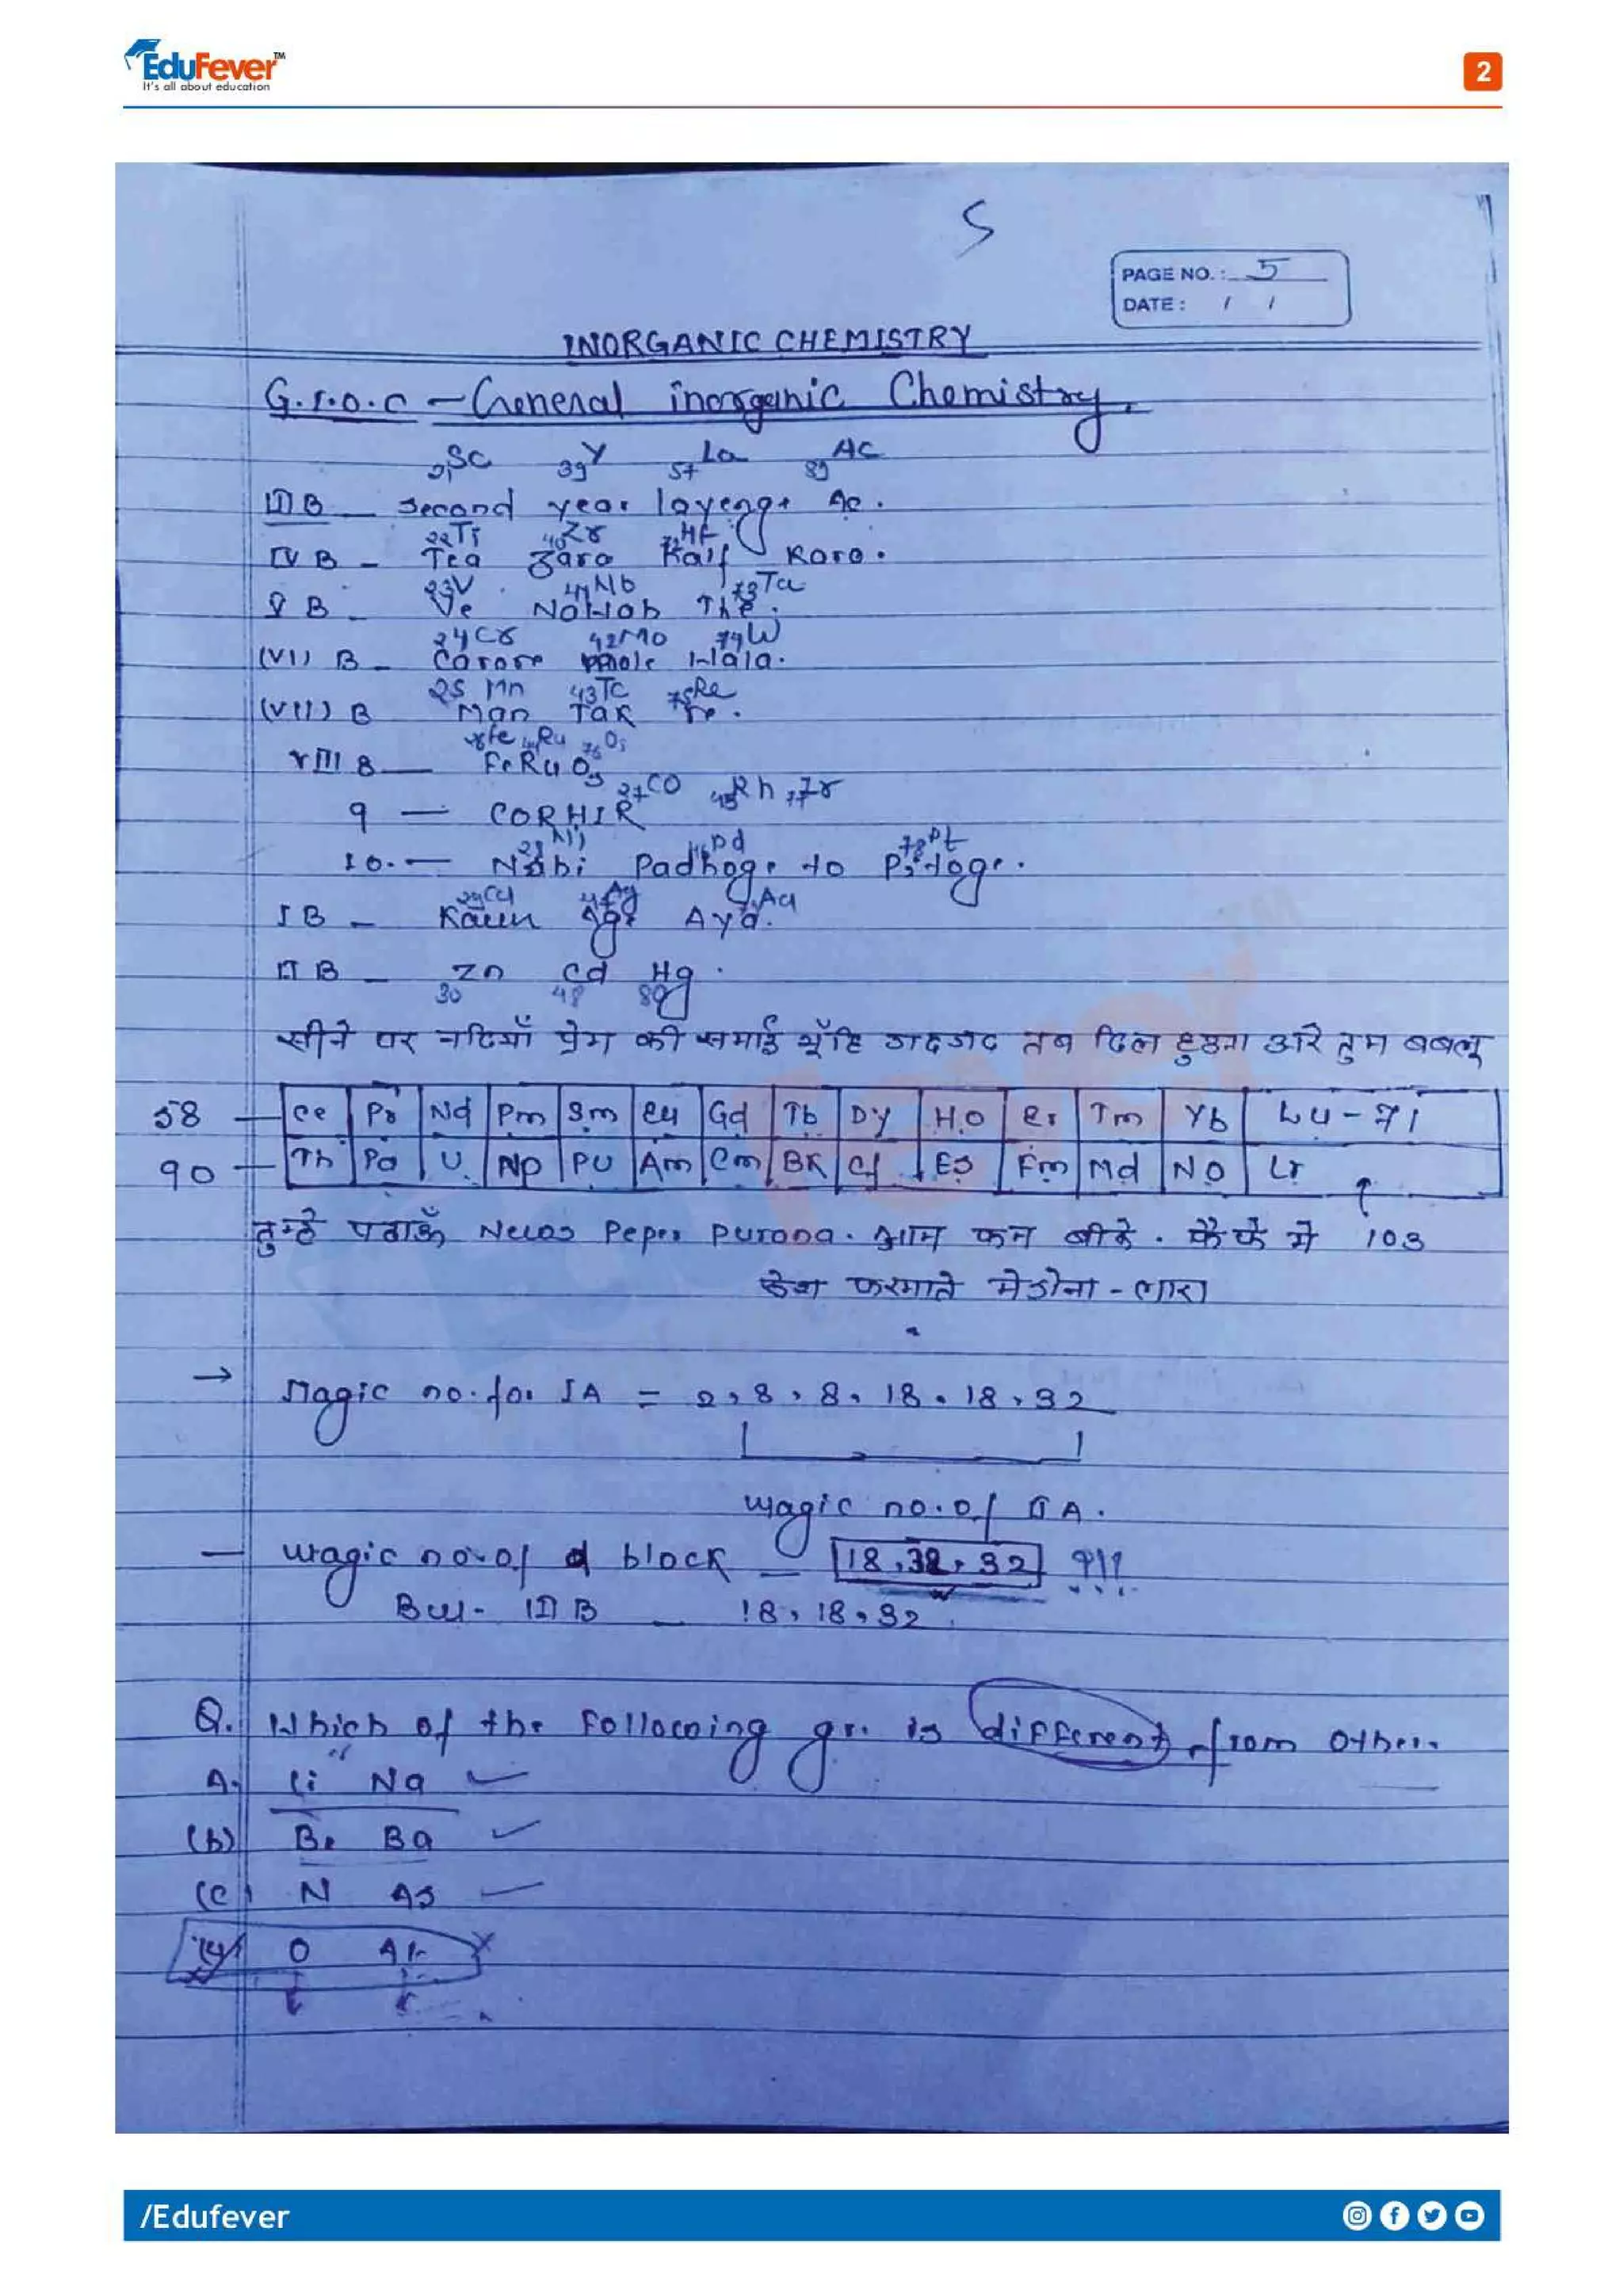 EduFever™
It's all about education
2
5
PAGE NO.: 5
DATE: / /
INORGANIC CHEMISTRY
G.I.O.C - General inorganic Chemistry.
21Sc 39Y 57La 89AC
III B - Second year layenge Ac.
22Ti 40Zr 72Hf
IV B - Tea Zara Kaif Kara.
23V 41Nb 73Ta
V B - Ve NaWab The.
24Cr 42Mo 74W
(VI) B - Carore Wala.
25 Mn 43Tc 75Re
(VII) B Man Tak re.
26Fe 44Ru 76Os
VIII 8 - FeRuOs
27CO 45Rh 77Ir
9 - CORHIR
28Ni 46Pd 78Pt
10. - Nabi Padhoge to Pitoge.
29Cu 47Ag 79Au
I B - Kaun Age Aya.
II B - Zn Cd Hg.
30 48 80
सीने पर नदियाँ प्रेम की समाई यूँहि गदगद तब दिल हुआ अरे तुम बबलू
58 - Ce Pr Nd Pm Sm Eu Gd Tb Dy HO Er Tm Yb Lu - 71
90 - Th Pa U Np PU Am Cm BK Cf Es Fm Md NO Lr
तुम्हे पढाऊँ News Peper Purana. आम कम बीके. कैफे मे 103
फरमाते मेडोना - लारा
→ Magic no. for IA = 2, 8, 8, 18, 18, 32
magic no. of II A.
- magic no. of d block - 18, 32, 32 ???
But - III B - 18, 18, 32.
Q. Which of the following gr. is different from other.
A. Li Na ✓
(b) Be Ba ✓
(c) N As
O Ar ×
/Edufever